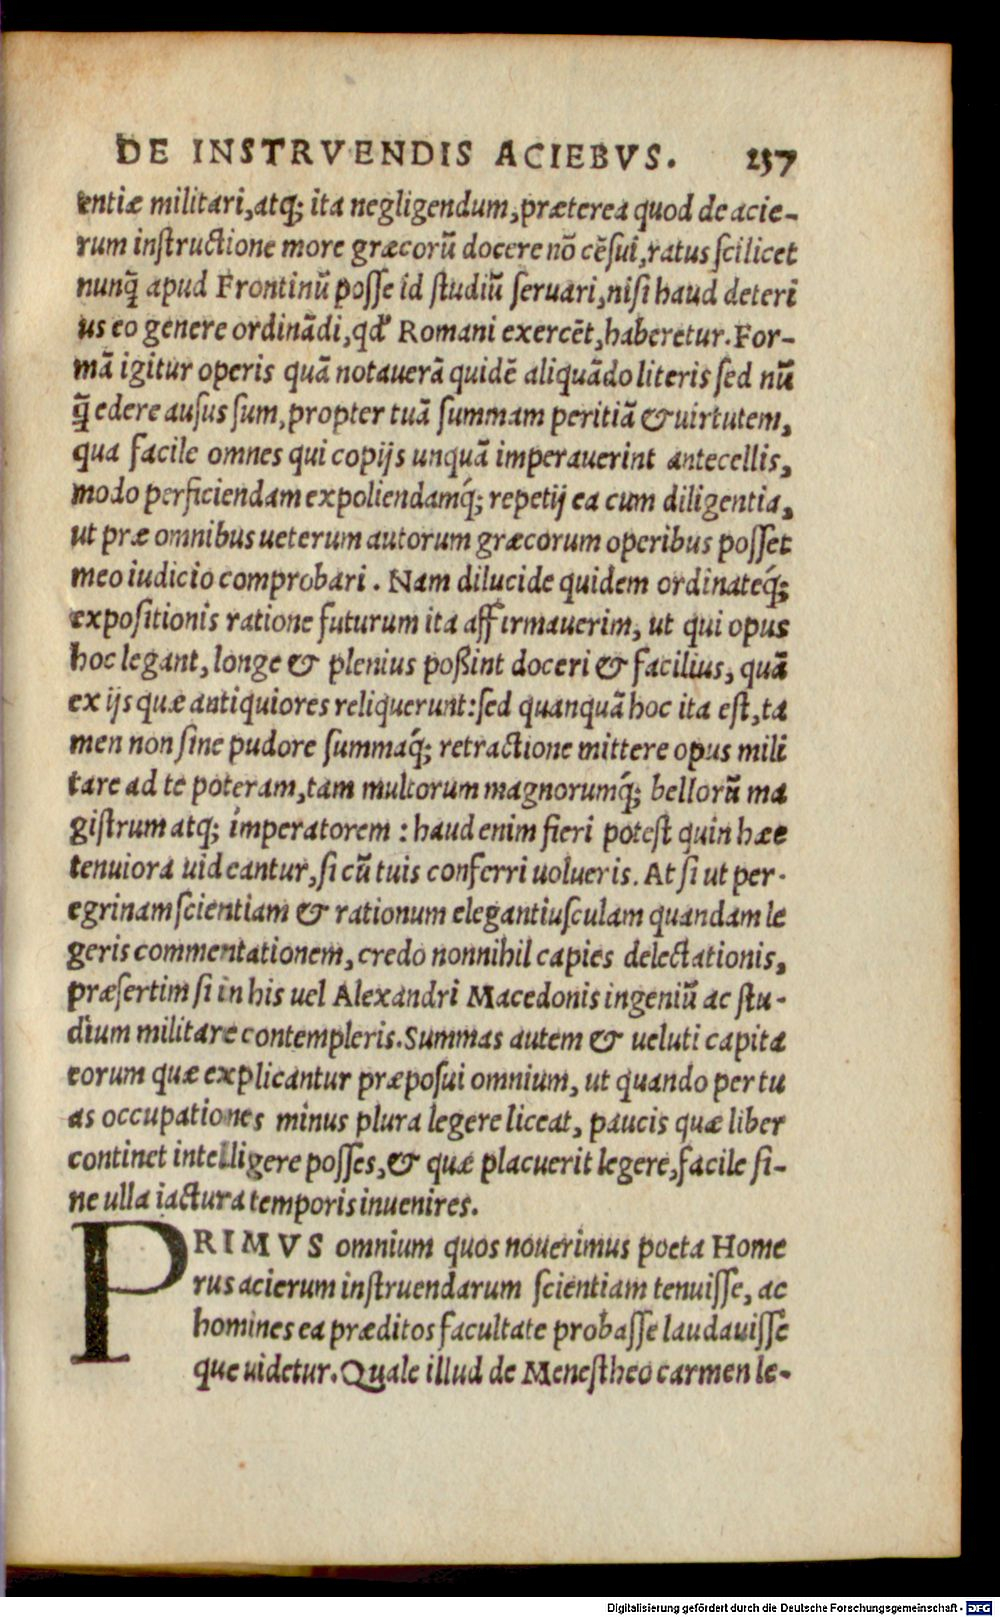 DE INSTRVENDIS ACIEBVS. 237
entiæ militari, atq; ita negligendum, præterea quod de acie-
rum instructione more græcorũ docere nõ cẽsui, ratus scilicet
nunq̃ apud Frontinũ posse id studiũ seruari, nisi haud deteri
us eo genere ordinãdi, qď Romani exercẽt, haberetur. For-
mã igitur operis quã notauerã quidẽ aliquãdo literis sed nũ
q̃ edere ausus sum, propter tuã summam peritiã & uirtutem,
qua facile omnes qui copijs unquã imperauerint antecellis,
modo perficiendam expoliendamq́; repetij ea cum diligentia,
ut præ omnibus ueterum autorum græcorum operibus posset
meo iudicio comprobari. Nam dilucide quidem ordinateq́;
expositionis ratione futurum ita affirmauerim, ut qui opus
hoc legant, longe & plenius poßint doceri & facilius, quã
ex ijs quæ antiquiores reliquerunt: sed quanquã hoc ita est, ta
men non sine pudore summaq́; retractione mittere opus mili
tare ad te poteram, tam multorum magnorumq́; bellorũ ma
gistrum atq; imperatorem : haud enim fieri potest quin hæc
tenuiora uideantur, si cũ tuis conferri uolueris. At si ut per-
egrinam scientiam & rationum elegantiusculam quandam le
geris commentationem, credo nonnihil capies delectationis,
præsertim si in his uel Alexandri Macedonis ingeniũ ac stu-
dium militare contempleris. Summas autem & ueluti capita
eorum quæ explicantur præposui omnium, ut quando per tu
as occupationes minus plura legere liceat, paucis quæ liber
continet intelligere posses, & quæ placuerit legere, facile si-
ne ulla iactura temporis inuenires.
PRIMVS omnium quos nouerimus poeta Home
rus acierum instruendarum scientiam tenuisse, ac
homines ea præditos facultate probasse laudauisse
que uidetur. Quale illud de Menestheo carmen le-
Digitalisierung gefördert durch die Deutsche Forschungsgemeinschaft - DFG